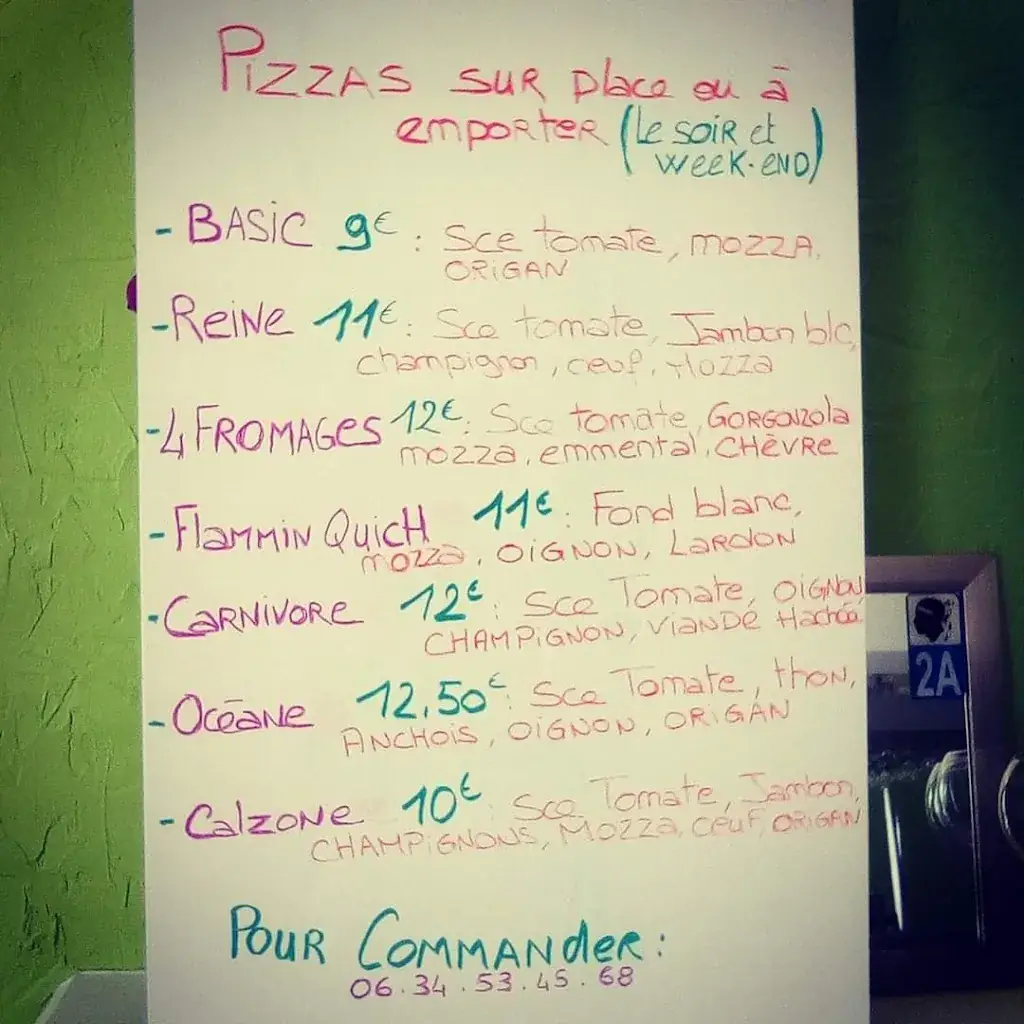 PIZZAS SUR place ou à
emporter (Le SOIR et
WEEK-END)
- BASIC 9€ : Sce tomate, MOZZA,
ORIGAN
- REINE 11€ : Sce tomate, Jambon blc,
champignon, oeuf, MOZZA
- 4 FROMAGES 12€ : Sce tomate, GORGONZOLA
mozza, emmental, CHÈVRE
- FLAMMIN QUICH 11€ : Fond blanc,
mozza, OIGNON, LARDON
- CARNIVORE 12€ : Sce Tomate, OIGNON,
CHAMPIGNON, VIANDE Hachée
- Océane 12,50€ : Sce Tomate, thON,
ANCHOIS, OIGNON, ORIGAN
- CALZONE 10€ : Sce Tomate, Jambon,
CHAMPIGNONS, MOZZA, oeuf, ORIGAN
POUR COMMANDER :
06.34.53.45.68
2A